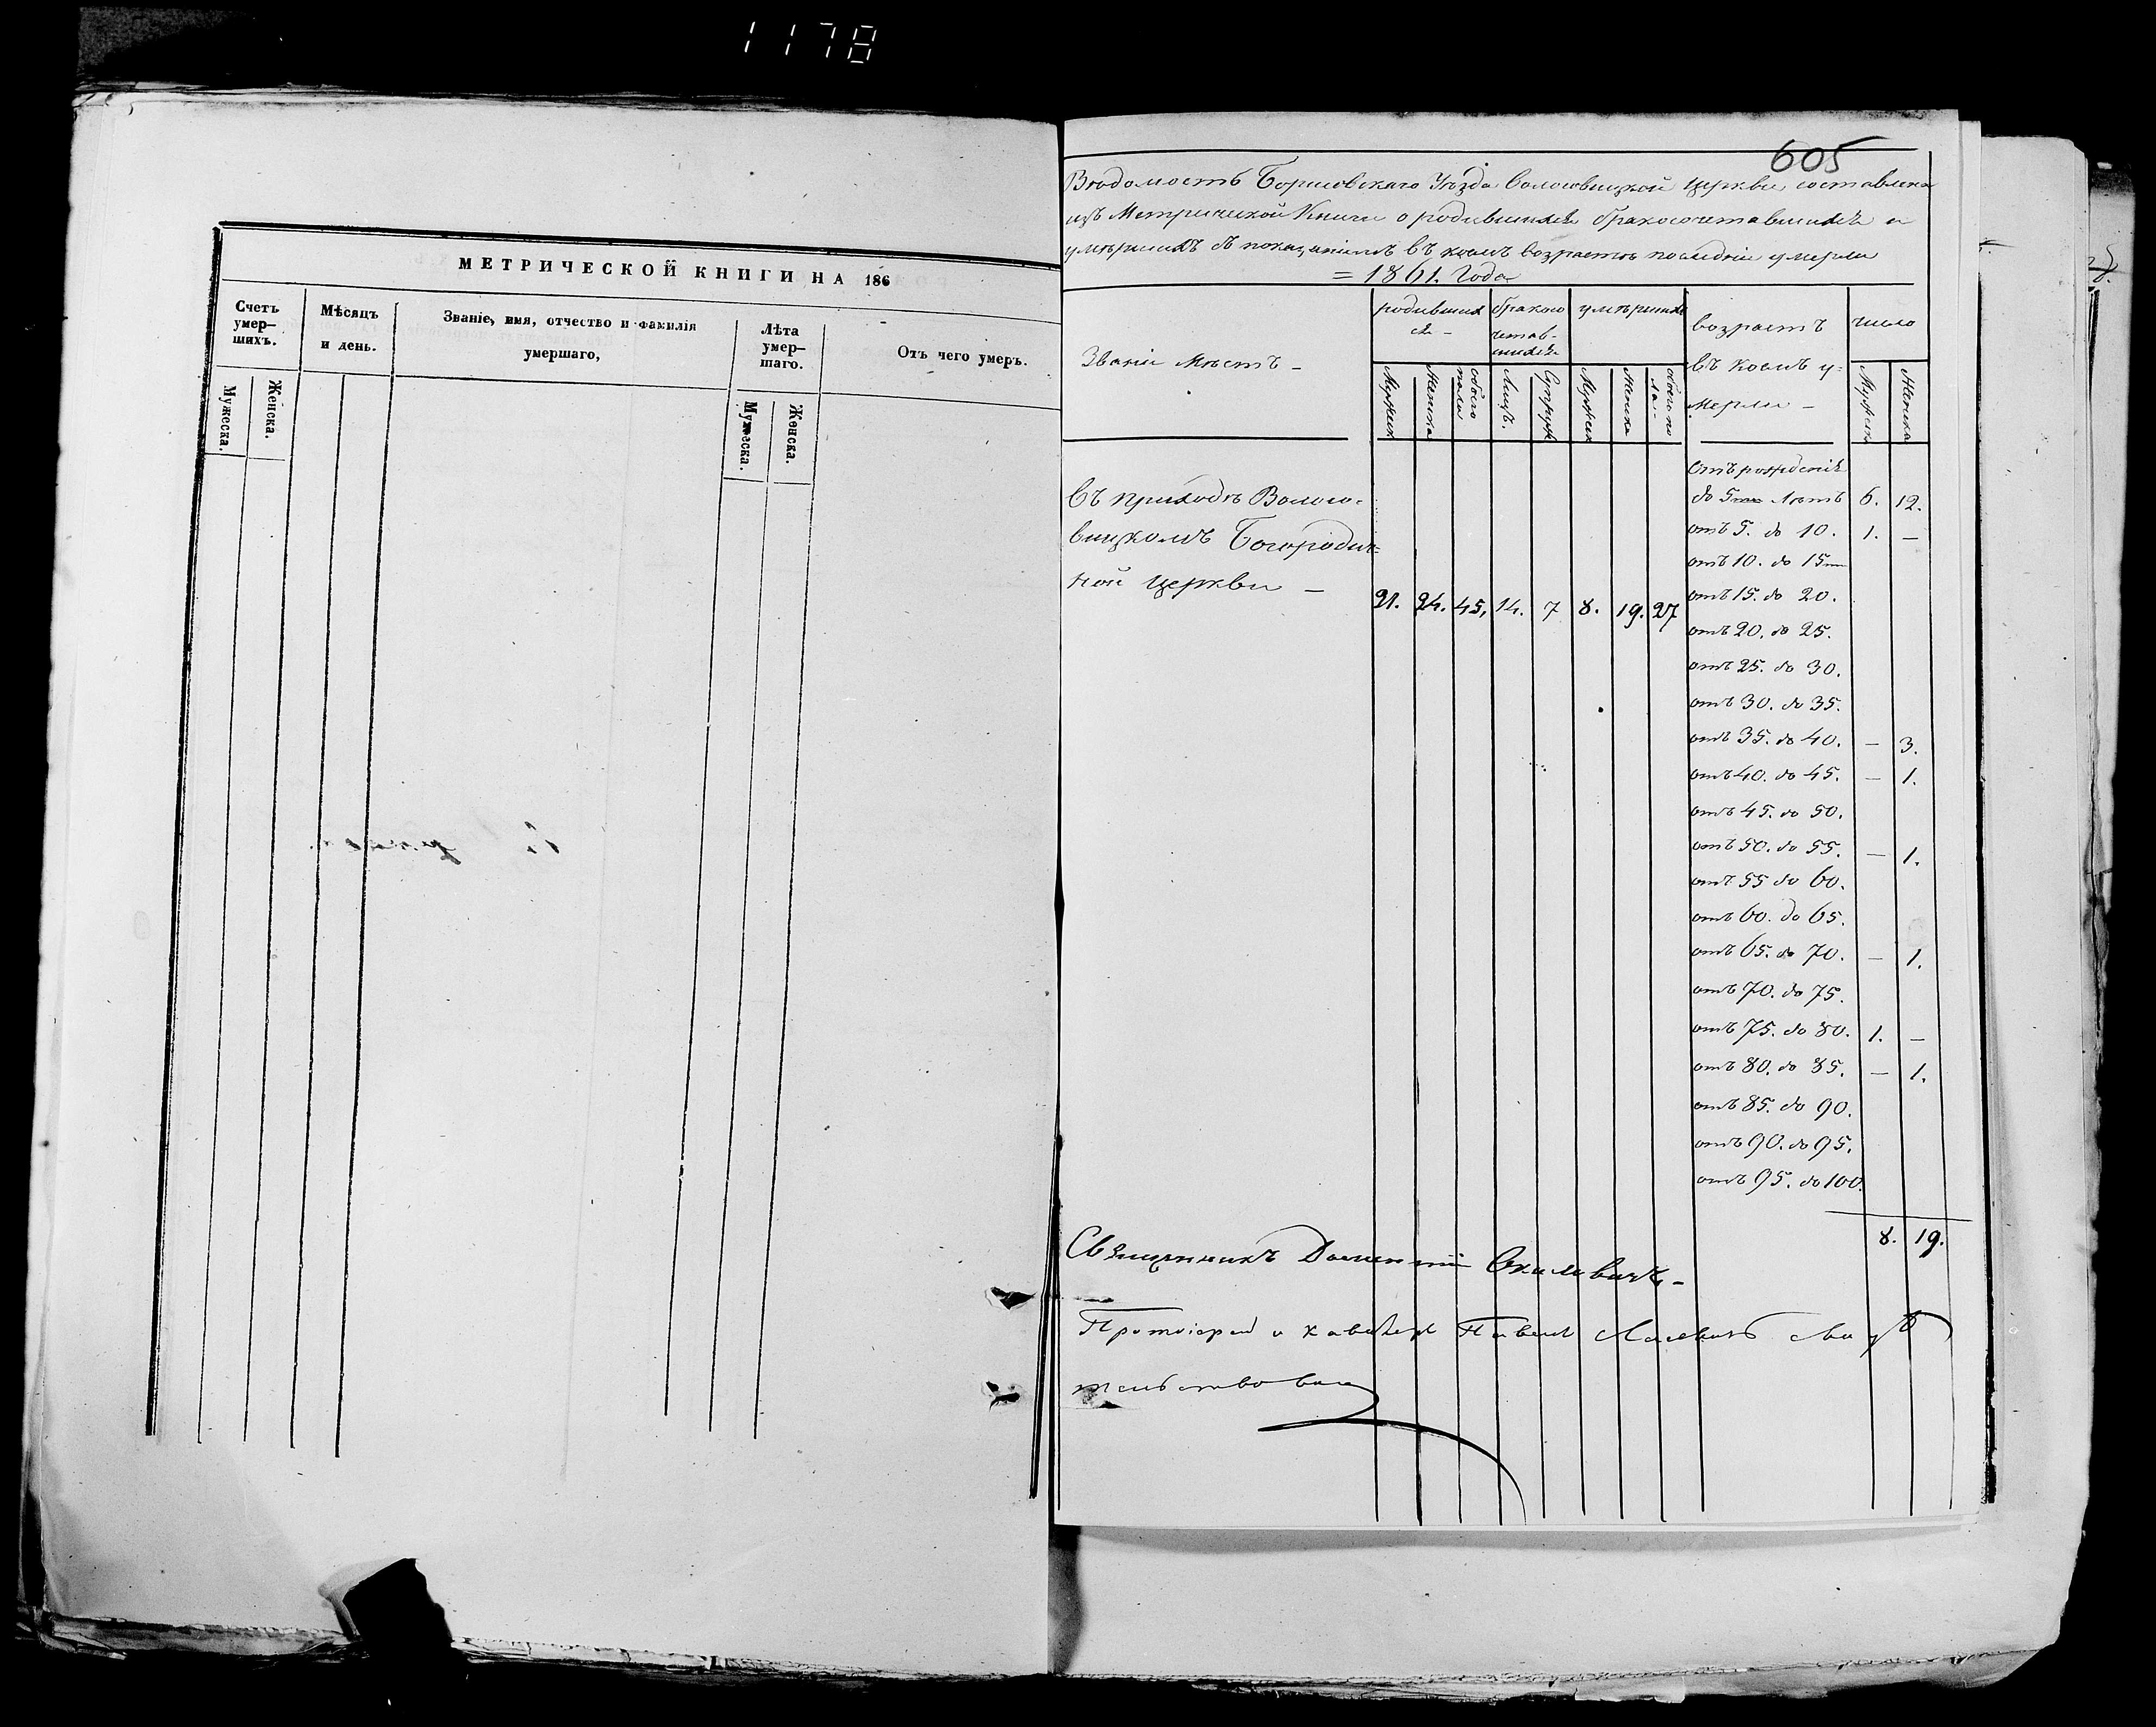 1178
МЕТРИЧЕСКОЙ КНИГИ НА 186
Счетъ умер— шихъ.
Мѣсяцъ и день.
Званіе, имя, отчество и фамилія умершаго,
Лѣта умер— шаго.
Отъ чего умеръ.
Мужеска.
Женска.
Мужеска.
Женска.
605
Вѣдомость Борисовскаго Уѣзда Волосовицкой церкви составлена
изъ Метрической Книги о родившихся бракосочетавшихся и
умершихъ съ показаніемъ въ коемъ возрастѣ послѣдніе умерли
= 1861. Года
Званіе мѣстъ –
родившихся –
бракосочетавшихся
умершихъ
возрастъ въ коемъ умерли –
число
Мужеск
Женска
обоего пола
Лицъ.
Супруж
Мужеск
Женска
обоего пола
Мужеска
Женска
Въ приходѣ Волосо-
вицкомъ Богородич=
ной церкви –
21. 24. 45, 14. 7 8. 19. 27
Отъ рожденія
до 5 лѣтъ 6. 12.
отъ 5. до 10. 1. –
отъ 10. до 15
отъ 15. до 20.
отъ 20. до 25.
отъ 25. до 30.
отъ 30. до 35.
отъ 35. до 40. – 3.
отъ 40. до 45. – 1.
отъ 45. до 50.
отъ 50. до 55. – 1.
отъ 55 до 60.
отъ 60. до 65.
отъ 65. до 70. – 1.
отъ 70. до 75.
отъ 75. до 80. 1. –
отъ 80. до 85. – 1.
отъ 85. до 90.
отъ 90. до 95.
отъ 95. до 100.
8. 19.
Священникъ
Протоіерей и кавалеръ Павелъ свидѣ
тельствовалъ